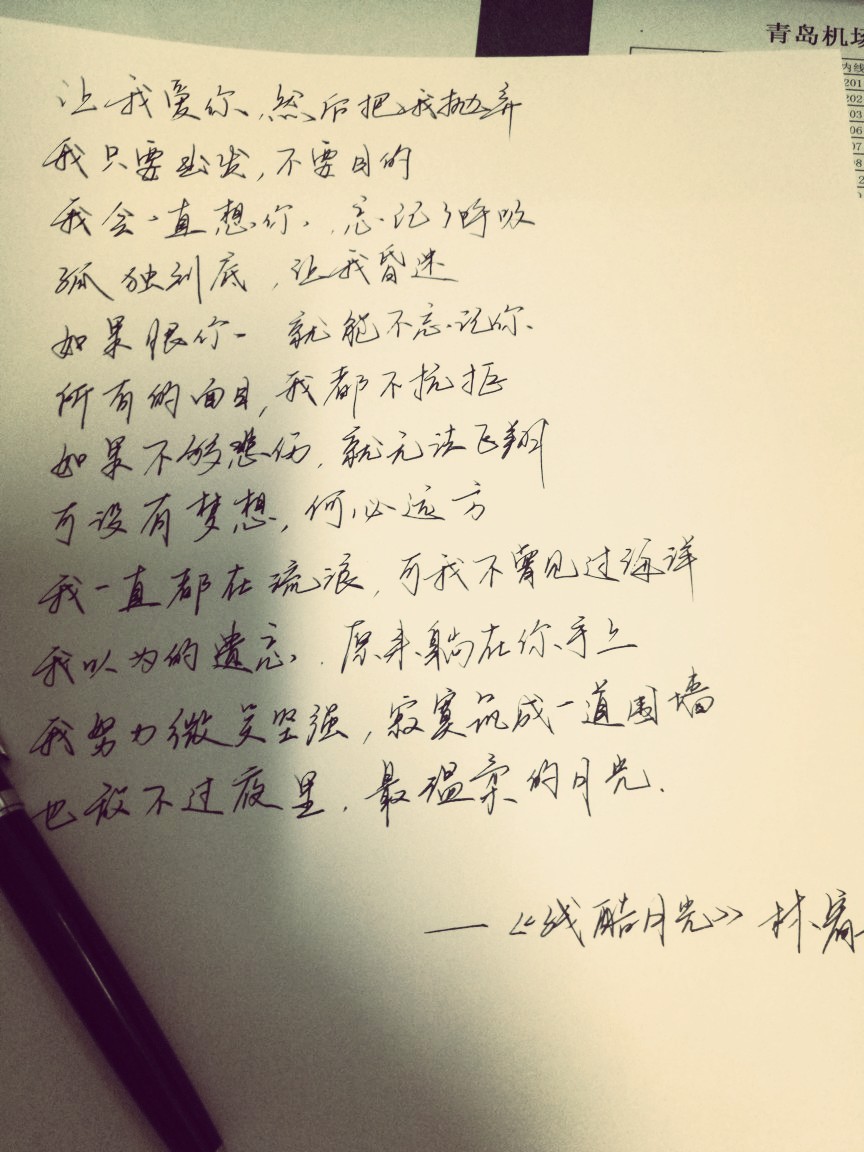 青岛机场
内线
201
202
03
06
07
让我爱你,然后把我抛弃
我只要出发,不要目的
我会一直想你,忘记了呼吸
孤独到底,让我昏迷
如果恨你 就能不忘记你
所有的面目,我都不抗拒
如果不够悲伤,就无法飞翔
可没有梦想,何必远方
我一直都在流浪,可我不曾见过海洋
我以为的遗忘,原来躺在你手上
我努力微笑坚强,寂寞筑成一道围墙
也敌不过夜里,最温柔的月光.
——《残酷月光》林宥